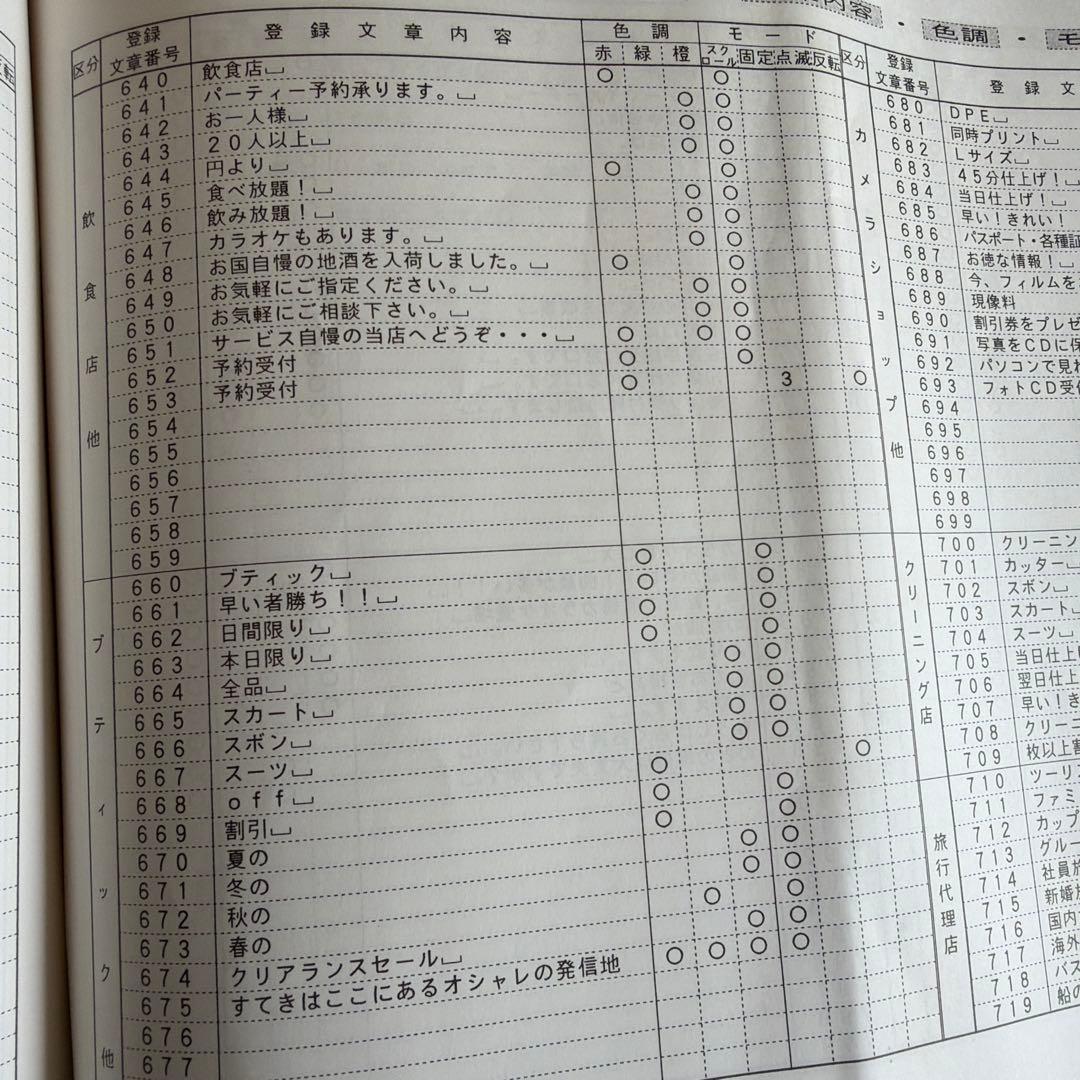 内容 ・ 色調 ・ モ
区分 登録文章番号 登録文章内容 色調 モード
赤 緑 橙 スクロール 固定 点滅 反転
飲食店他
640 飲食店␣ ○ ○
641 パーティー予約承ります。␣ ○ ○
642 お一人様␣ ○ ○
643 20人以上␣ ○ ○
644 円より␣ ○ ○
645 食べ放題!␣ ○ ○
646 飲み放題!␣ ○ ○
647 カラオケもあります。␣ ○ ○
648 お国自慢の地酒を入荷しました。␣ ○ ○
649 お気軽にご指定ください。␣ ○ ○
650 お気軽にご相談下さい。␣ ○ ○
651 サービス自慢の当店へどうぞ・・・␣ ○ ○ ○
652 予約受付 ○ ○
653 予約受付 ○ 3 ○
654
655
656
657
658
659
ブティック他
660 ブティック␣
661 早い者勝ち!!␣
662 日間限り␣
663 本日限り␣
664 全品␣
665 スカート␣
666 スボン␣
667 スーツ␣
668 off␣
669 割引␣
670 夏の
671 冬の
672 秋の
673 春の
674 クリアランスセール␣
675 すてきはここにあるオシャレの発信地
676
677
区分 登録文章番号 登録文
カメラショップ他
680 DPE␣
681 同時プリント␣
682 Lサイズ␣
683 45分仕上げ!␣
684 当日仕上げ!␣
685 早い!きれい!
686 パスポート・各種証
687 お徳な情報!␣
688 今、フィルムを
689 現像料
690 割引券をプレゼ
691 写真をCDに保
692 パソコンで見れ
693 フォトCD受付
694
695
696
697
698
699
クリーニング店
700 クリーニン
701 カッター␣
702 スボン␣
703 スカート␣
704 スーツ␣
705 当日仕上げ
706 翌日仕上
707 早い!き
708 クリー
709 枚以上割
旅行代理店
710 ツーリス
711 ファミ
712 カップ
713 グルー
714 社員旅
715 新婚旅
716 国内
717 海外
718 バス
719 船の